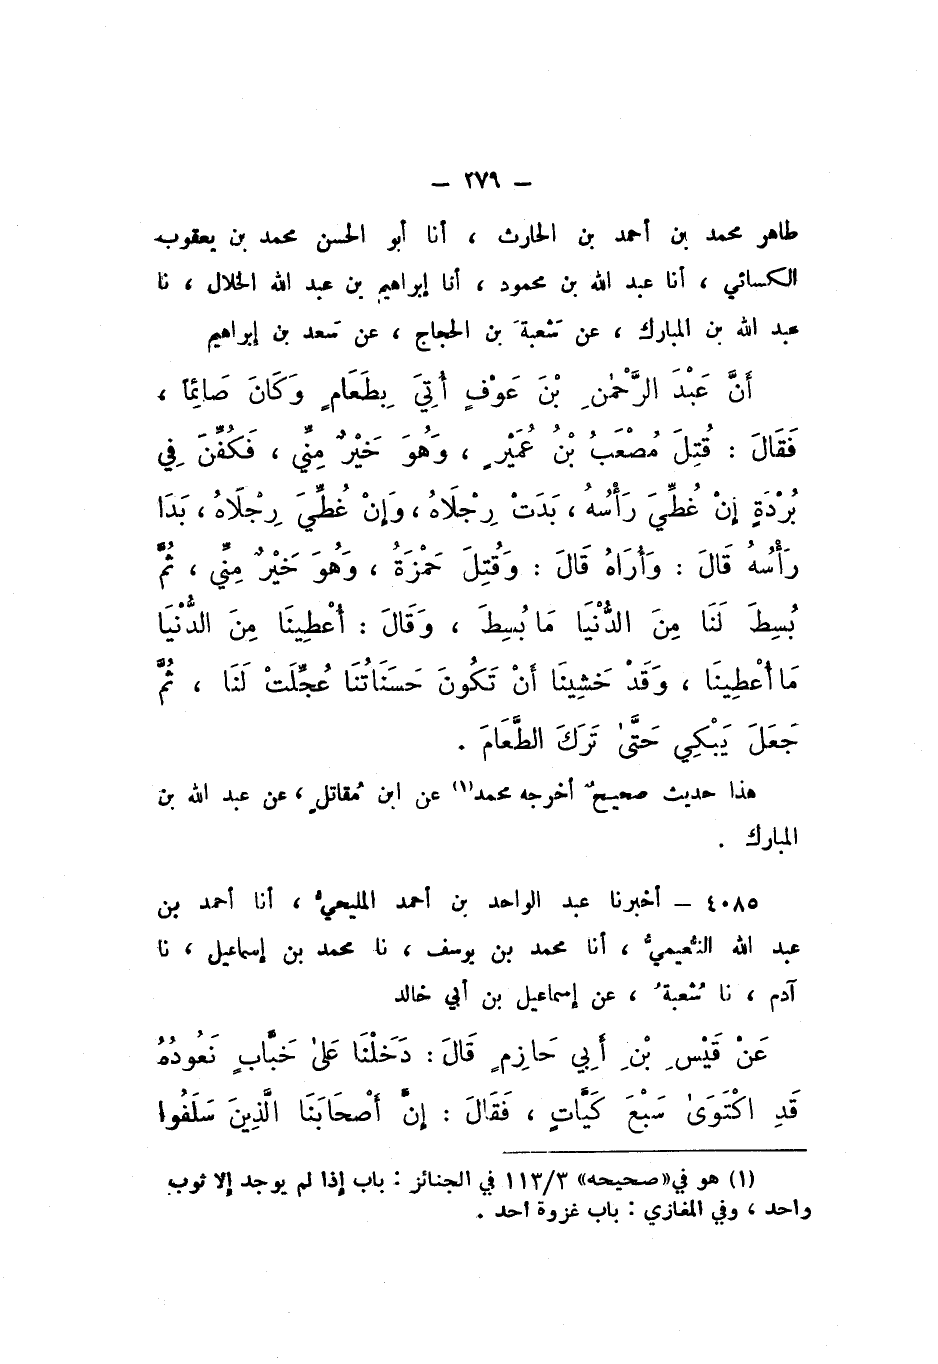 — ٢٧٩ —
طاهر محمد بن أحمد بن الحارث ، أنا أبو الحسن محمد بن يعقوب
الكسائي ، أنا عبد الله بن محمود ، أنا إبراهيم بن عبد الله الخلال ، نا
عبد الله بن المبارك ، عن شعبة َ بن الحجاج ، عن سَعد بن إبراهيم
أَنَّ عَبْدَ الرَّحْمٰنِ بْنَ عَوْفٍ أُتِيَ بِطَعَامٍ وَكَانَ صَائِمًا ،
فَقَالَ : قُتِلَ مُصْعَبُ بْنُ عُمَيْرٍ ، وَهُوَ خَيْرٌ مِنِّي ، فَكُفِّنَ فِي
بُرْدَةٍ إِنْ غُطِّيَ رَأْسُهُ ، بَدَتْ رِجْلَاهُ ، وَإِنْ غُطِّيَ رِجْلَاهُ ، بَدَا
رَأْسُهُ قَالَ : وَأُرَاهُ قَالَ : وَقُتِلَ حَمْزَةُ ، وَهُوَ خَيْرٌ مِنِّي ، ثُمَّ
بُسِطَ لَنَا مِنَ الدُّنْيَا مَا بُسِطَ ، وَقَالَ : أُعْطِينَا مِنَ الدُّنْيَا
مَا أُعْطِينَا ، وَقَدْ خَشِينَا أَنْ تَكُونَ حَسَنَاتُنَا عُجِّلَتْ لَنَا ، ثُمَّ
جَعَلَ يَبْكِي حَتَّىٰ تَرَكَ الطَّعَامَ .
هذا حديث صحيحٌ أخرجه محمد(١) عن ابن مُقاتلٍ ، عن عبد الله بن
المبارك .
٤٠٨٥ — أخبرنا عبد الواحد بن أحمد المليحيُّ ، أنا أحمد بن
عبد الله النُّعيميُّ ، أنا محمد بن يوسف ، نا محمد بن إسماعيل ، نا
آدم ، نا شُعبة ُ ، عن إسماعيل بن أبي خالد
عَنْ قَيْسِ بْنِ أَبِي حَازِمٍ قَالَ : دَخَلْنَا عَلَىٰ خَبَّابٍ نَعُودُهُ
قَدِ اكْتَوَىٰ سَبْعَ كَيَّاتٍ ، فَقَالَ : إِنَّ أَصْحَابَنَا الَّذِينَ سَلَفُوا
(١) هو في «صحيحه» ١١٣/٣ في الجنائز : باب إذا لم يوجد إلا ثوب
واحد ، وفي المغازي : باب غزوة أحد .